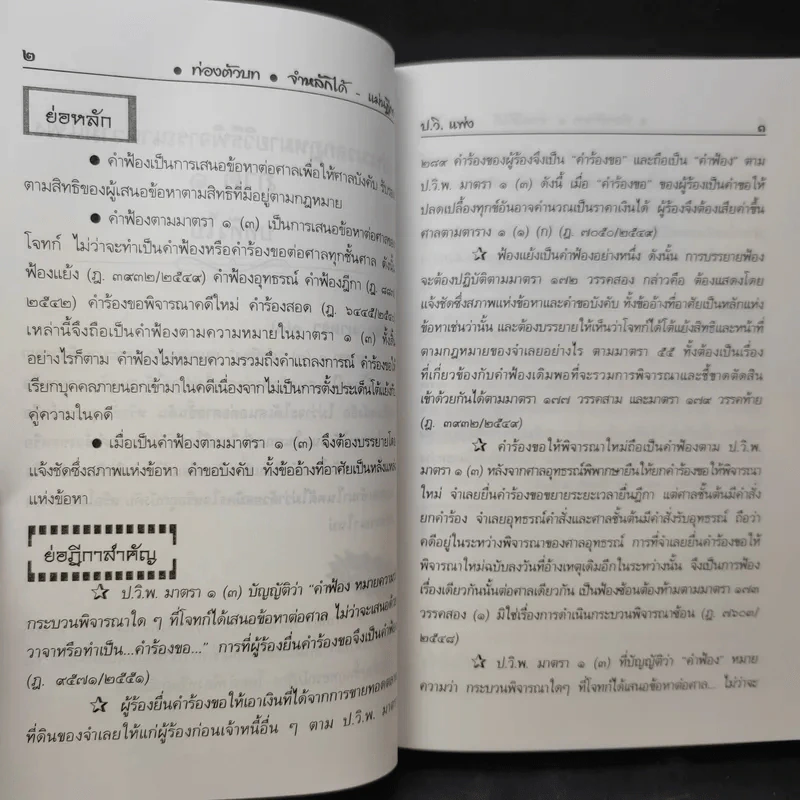 ๒
● ท่องตัวบท ● จำหลักได้ - แม่นฎีกา
ย่อหลัก
● คำฟ้องเป็นการเสนอข้อหาต่อศาลเพื่อให้ศาลบังคับ รับรอง
ตามสิทธิของผู้เสนอข้อหาตามสิทธิที่มีอยู่ตามกฎหมาย
● คำฟ้องตามมาตรา ๑ (๓) เป็นการเสนอข้อหาต่อศาลของ
โจทก์ ไม่ว่าจะทำเป็นคำฟ้องหรือคำร้องขอต่อศาลทุกชั้นศาล ดังนั้น
ฟ้องแย้ง (ฎ. ๓๙๓๒/๒๕๔๙) คำฟ้องอุทธรณ์ คำฟ้องฎีกา (ฎ.
๒๕๔๒) คำร้องขอพิจารณาคดีใหม่ คำร้องสอด (ฎ.
เหล่านี้จึงถือเป็นคำฟ้องตามความหมายในมาตรา ๑ (๓) ทั้งสิ้น
อย่างไรก็ตาม คำฟ้องไม่หมายความรวมถึงคำแถลงการณ์ คำร้องขอให้
เรียกบุคคลภายนอกเข้ามาในคดีเนื่องจากไม่เป็นการตั้งประเด็นโต้แย้งกับ
คู่ความในคดี
● เมื่อเป็นคำฟ้องตามมาตรา ๑ (๓) จึงต้องบรรยายโดย
แจ้งชัดซึ่งสภาพแห่งข้อหา คำขอบังคับ ทั้งข้ออ้างที่อาศัยเป็นหลักแห่ง
แห่งข้อหา
ย่อฎีกาสำคัญ
☆ ป.วิ.พ. มาตรา ๑ (๓) บัญญัติว่า “คำฟ้อง หมายความว่า
กระบวนพิจารณาใด ๆ ที่โจทก์ได้เสนอข้อหาต่อศาล ไม่ว่าจะเสนอด้วย
วาจาหรือทำเป็น...คำร้องขอ...” การที่ผู้ร้องยื่นคำร้องขอจึงเป็นคำฟ้อง
(ฎ. ๙๕๗๑/๒๕๕๑)
☆ ผู้ร้องยื่นคำร้องขอให้เอาเงินที่ได้จากการขายทอดตลาด
ที่ดินของจำเลยให้แก่ผู้ร้องก่อนเจ้าหนี้อื่น ๆ ตาม ป.วิ.พ. มาตรา
ป.วิ. แพ่ง
๓
๒๘๙ คำร้องของผู้ร้องจึงเป็น “คำร้องขอ” และถือเป็น “คำฟ้อง” ตาม
ป.วิ.พ. มาตรา ๑ (๓) ดังนี้ เมื่อ “คำร้องขอ” ของผู้ร้องเป็นคำขอให้
ปลดเปลื้องทุกข์อันอาจคำนวณเป็นราคาเงินได้ ผู้ร้องจึงต้องเสียค่าขึ้น
ศาลตามตาราง ๑ (๑) (ก) (ฎ. ๗๐๕๐/๒๕๔๙)
☆ ฟ้องแย้งเป็นคำฟ้องอย่างหนึ่ง ดังนั้น การบรรยายฟ้อง
จะต้องปฏิบัติตามมาตรา ๑๗๒ วรรคสอง กล่าวคือ ต้องแสดงโดย
แจ้งชัดซึ่งสภาพแห่งข้อหาและคำขอบังคับ ทั้งข้ออ้างที่อาศัยเป็นหลักแห่ง
ข้อหาเช่นว่านั้น และต้องบรรยายให้เห็นว่าโจทก์ได้โต้แย้งสิทธิและหน้าที่
ตามกฎหมายของจำเลยอย่างไร ตามมาตรา ๕๕ ทั้งต้องเป็นเรื่อง
ที่เกี่ยวข้องกับคำฟ้องเดิมพอที่จะรวมการพิจารณาและชี้ขาดตัดสิน
เข้าด้วยกันได้ตามมาตรา ๑๗๗ วรรคสาม และมาตรา ๑๗๙ วรรคท้าย
(ฎ. ๓๙๓๒/๒๕๔๙)
☆ คำร้องขอให้พิจารณาใหม่ถือเป็นคำฟ้องตาม ป.วิ.พ.
มาตรา ๑ (๓) หลังจากศาลอุทธรณ์พิพากษายืนให้ยกคำร้องขอให้พิจารณา
ใหม่ จำเลยยื่นคำร้องขอขยายระยะเวลายื่นฎีกา แต่ศาลชั้นต้นมีคำสั่ง
ยกคำร้อง จำเลยอุทธรณ์คำสั่งและศาลชั้นต้นมีคำสั่งรับอุทธรณ์ ถือว่า
คดีอยู่ในระหว่างพิจารณาของศาลอุทธรณ์ การที่จำเลยยื่นคำร้องขอให้
พิจารณาใหม่ฉบับลงวันที่อ้างเหตุเดิมอีกในระหว่างนั้น จึงเป็นการฟ้อง
เรื่องเดียวกันนั้นต่อศาลเดียวกัน เป็นฟ้องซ้อนต้องห้ามตามมาตรา ๑๗๓
วรรคสอง (๑) มิใช่เรื่องการดำเนินกระบวนพิจารณาซ้อน (ฎ. ๗๖๐๓/
๒๕๔๘)
☆ ป.วิ.พ. มาตรา ๑ (๓) ที่บัญญัติว่า “คำฟ้อง” หมาย
ความว่า กระบวนพิจารณาใดๆ ที่โจทก์ได้เสนอข้อหาต่อศาล... ไม่ว่าจะ